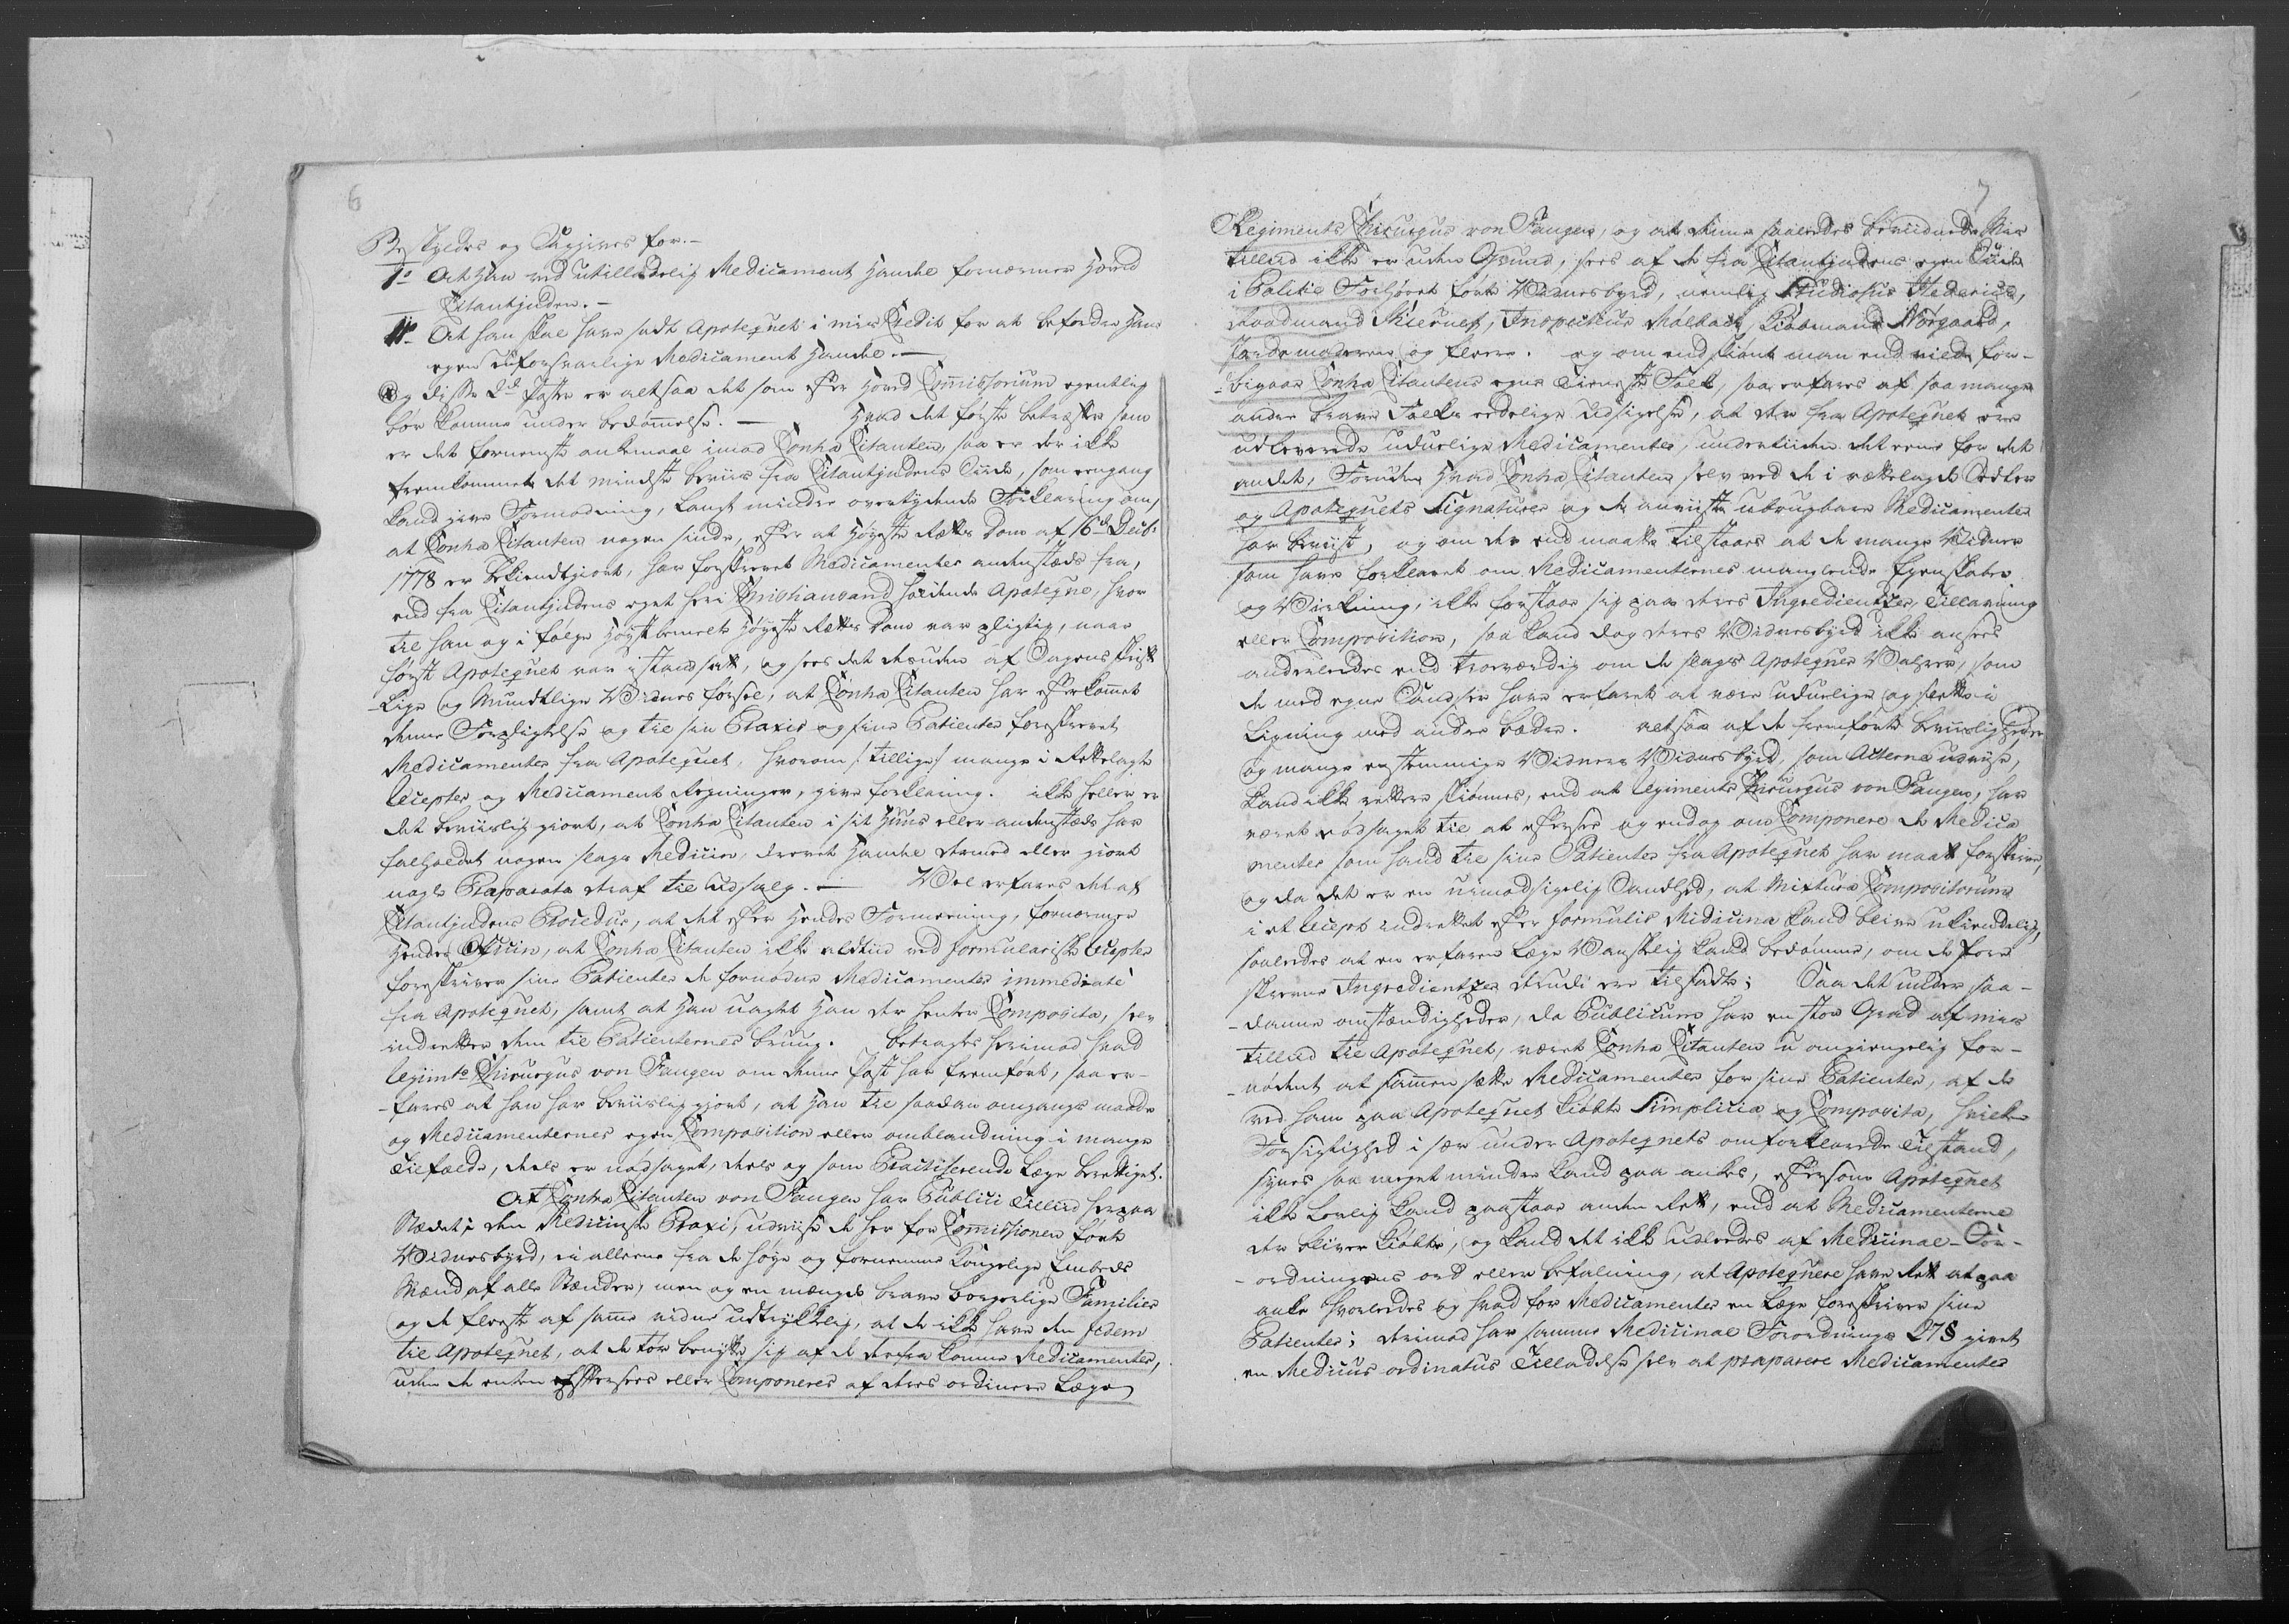 6
Beskyldes og Angives for. –
1º At han ved utilladelig Medicament Handel fornærmer Hoved
Citantinden. –
2º At han skal have sadt Apotequet i mis Credit for at befordre hans
egen uforsvarlige Medicament Handel. –
Og disse 2de Poster er altsaa det som efter Hoved Commissorium egentlig
bør komme under bedømmelse. – Hvad det første betreffer som
er det fornemste ankemaal imod Contra Citanten, saa er der ikke
fremkommet det mindste beviis fra Citantindens Siide, som eengang
kand give Formodning, langt mindre overtydende Forklaring om,
at Contra Citanten nogen sinde, efter at Højeste Rettes Dom af 16de Decbr
1778 er bekiendtgiort, har forskrevet Medicamenter andenstæds fra,
end fra Citantindens eget her i Christiansand havende Apoteque, hvor
til han og i følge Højst bemelte Højeste Rettes Dom var pligtig, naar
først Apotequet var i stand sat, og sees det desuden af Sagens skrift
-lige og Mundtlige Vidnes førsel, at Contra Citanten har efterkommet
denne Forpligtelse og til sin Praxis og sine Patienter foreskrevet
Medicamenter fra Apotequet, hvorom /: tillige :/ mange i Rettelagte
Recepter og Medicament Regninger, give forklaring. ikke heller er
det beviislig giort, at Contra Citanten i sit Huus eller andenstæds har
falholdet nogen slags Medicin, drevet Handel dermed eller giort
nogle Præparata deraf til udsalg. – Vel erfares det af
Citantindens Procedur, at det efter hendes Formeening, fornærmer
hendes Officin, at Contra Citanten ikke altiid ved formulariske Recepter
foreskriver sine Patienter de fornødne Medicamenter immediate
fra Apotequet, samt at han uagtet han der henter Composita, selv
indretter dem til Patienternes brug. betragtes herimod hvad
Regimts Chirurgus von Fangen om denne Post har fremført, saa er-
-fares at han har beviislig giort, at han til saadan omgangs maade
og Medicamenternes egen Composition eller omblandning i mange
Tilfælde, deels er nødsaget, deels og som Practiserende Læge berettiget.
At Contra Citanten von Fangen har Publici Tillid her paa
Stædet i den Medicinske Praxi, udviise de her for Commissionen førte
Vidnesbyrd, ei alleene fra de høye og fornemme Kongelige Embeds
Mænd af alle Stænder, men og en mængde brave borgerlige Familier
og de fleeste af samme vidne udtrykkelig, at de ikke have den
til Apotequet, at de tør benytte sig af de derfra komne Medicamenter,
uden de enten efftersees eller Componeres af deres ordinere Læge
7
Regiments Chirurgus von Fangen, og at denne saaledes bevidnede Mis
tillid ikke er uden Grund, sees af de fra Citantindens egen Siide
i Politie Forhøret førte Vidnesbyrd, nemlig Studiosus
Raadmand Inspecteur Kiøbmand Nørgaard,
Jordemoderen og fleere. og om endskiønt man end vilde for-
-bigaae Contra Citantens egne Tieneste Folk, saa erfares af saa mange
andre brave Folkes eedelige udsigelse, at der fra Apotequet ere
udleverede uduelige Medicamenter, undertiiden det eene for det
andet, Foruden hvad Contra Citanten selv ved de i rettelagde Sedler
og Apotequets Signaturer og de anviiste ubrugbare Medicamenter
har beviist, og om der end maatte tilstaaes at de mange Vidner
som have forklaret om Medicamenternes manglende Egenskaber
og Virkning, ikke forstaae sig paa deres Ingredientzer, Tillavning
eller Composition, saa kand dog deres Vidnesbyrd ikke ansees
anderledes end troeværdig om de slags Apotequer Vahrer, som
de med egne Sandser have erfaret at være uduelige og slette i
Ligning med andre bedre. altsaa af de fremførte beviisligheder
og mange eenstemmige Vidners Vidnesbyrd, som Acterne udviise,
kand ikke rettere skiønnes, end at Regiments Chirurgus von Fangen, har
været nødsaget til at eftersee og endog om Componere de Medica
menter som hand til sine Patienter fra Apotequet har maatt forskrive,
og da det er en uimodsigelig Sandhed, at Mixtura Compositorum
i et Recept indrettet efter formulis Medicina kand blive ukiendelig,
saaledes at en erfaren Læge Vanskelig kand bedømme, om de fore
skrevne Ingredientzer derudi ere tilsadte; Saa det under saa-
-danne omstændigheder, da Publicum har en stor Grad af mis
tillid til Apotequet, været Contra Citanten u omgiængelig for-
-nødent at sammen sætte Medicamenter for sine Patienter, af de
ved ham paa Apotequet kiøbte Simplicia og Composita, hvilken
Forsigtighed i sær under Apotequets omforklarede Tilstand,
synes saa meget mindre kand paa ankes, eftersom Apotequet
ikke Lovlig kand paastaae anden Rett, end at Medicamenterne
der bliver kiøbte, og kand det ikke udleedes af Medicinal-For-
-ordningens ord eller befalning, at Apotequere have Rett at paa
anke hvorledes og hvad for Medicamenter en Læge foreskriver sine
Patienter; derimod har samme Medicinal Forordnings 27 § givet
en Medicus ordinatus Tilladelse selv at præparere Medicamenter